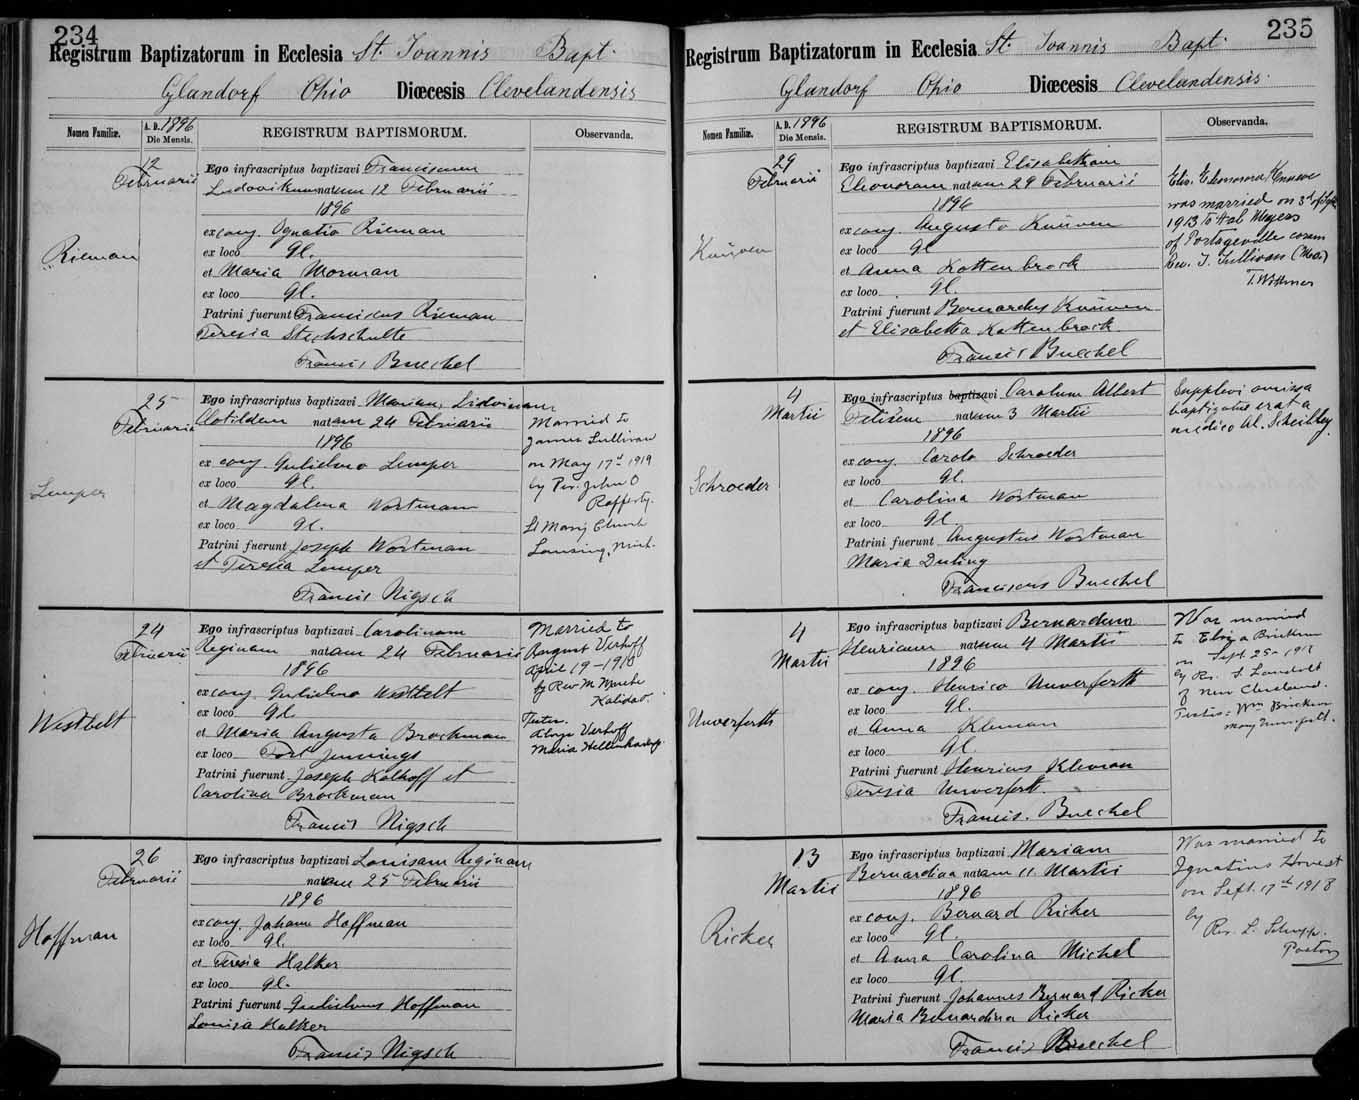 234
Registrum Baptizatorum in Ecclesia St. Joannis Bapt.
Glandorf Ohio Diœcesis Clevelandensis
Nomen Familiæ.
A. D. 1896
Die Mensis.
REGISTRUM BAPTISMORUM.
Observanda.
12
Februarii
Rieman
Ego infrascriptus baptizavi Franciscum
Ludovikum natum 12 Februarii
1896
ex conj. Ignatio Rieman
ex loco Gl.
et Maria Morman
ex loco Gl.
Patrini fuerunt Franciscus Rieman
Teresia Stechschulte
Francis Buechel
25
Februarii
Lemper
Ego infrascriptus baptizavi Mariam, Lidvinam
Clotildem natam 24 Februarii
1896
ex conj. Gulielmo Lemper
ex loco Gl.
et Magdalena Wortmann
ex loco Gl.
Patrini fuerunt Joseph Wortman
et Teresia Lemper
Francis Nigsch
Married to
James Sullivan
on May 17th 1919
by Rev. John O
Rafferty.
St Mary Church
Lansing, Mich.
24
Februarii
Westbelt
Ego infrascriptus baptizavi Carolinam
Reginam natam 24 Februarii
1896
ex conj. Gulielmo Westbelt
ex loco Gl.
et Maria Augusta Brockman
ex loco Fort Jennings
Patrini fuerunt Joseph Kalhoff et
Carolina Brockman
Francis Nigsch
Married to
August Verhoff
April 19-1918
by Rev M
Kalida O.
Testes.
Aloys Verhoff
Maria Hellenkamp
26
Februarii
Hoffman
Ego infrascriptus baptizavi Louisam Reginam
natam 25 Februarii
1896
ex conj. Johann Hoffman
ex loco Gl.
et Teresia Halker
ex loco Gl.
Patrini fuerunt Gulielmus Hoffman
Louisa Halker
Francis Nigsch
235
Registrum Baptizatorum in Ecclesia St. Joannis Bapt.
Glandorf Ohio Diœcesis Clevelandensis.
Nomen Familiæ.
A. D. 1896
Die Mensis.
REGISTRUM BAPTISMORUM.
Observanda.
29
Februarii
Knüven
Ego infrascriptus baptizavi Elisabetham
Eleonoram natam 29 Februarii
1896
ex conj. Augusto Knüven
ex loco Gl
et Anna Kottenbrock
ex loco Gl.
Patrini fuerunt Bernardus Knüven
et Elisabetha Kottenbrock
Francis Buechel
Elis. Eleonora Knueve
was married on 3d of Sept
1913 to Hal Meyers
of Portageville coram
Rev. T. Sullivan (Mo.)
T. Wittmer
4
Martii
Schroeder
Ego infrascriptus baptizavi Carolum Albert
Felicem natum 3 Martii
1896
ex conj. Carolo Schroeder
ex loco Gl.
et Carolina Wortman
ex loco Gl
Patrini fuerunt Augustus Wortman
Maria Duling
Franciscus Buechel
Supplevi omissa
baptizatus erat a
medico Al. Scheibley.
4
Martii
Unverferth
Ego infrascriptus baptizavi Bernardum
Henricum natum 4 Martii
1896
ex conj. Henrico Unverferth
ex loco Gl.
et Anna Kleman
ex loco Gl.
Patrini fuerunt Henricus Kleman
Teresia Unverferth
Francis. Buechel
Was married
to Eliza Brickner
on Sept 25-
by Rev. S.
of New Cleveland.
Testis: Wm Brickner
Mary
13
Martii
Ricker
Ego infrascriptus baptizavi Mariam
Bernardina natam 11 Martii
1896
ex conj. Bernard Ricker
ex loco Gl.
et Anna Carolina Michel
ex loco Gl.
Patrini fuerunt Johannes Bernard Ricker
Maria Bernardina Ricker
Francis Buechel
Was married to
Ignatius Hovest
on Sept. 17th 1918
by
Rev. L.
Pastor